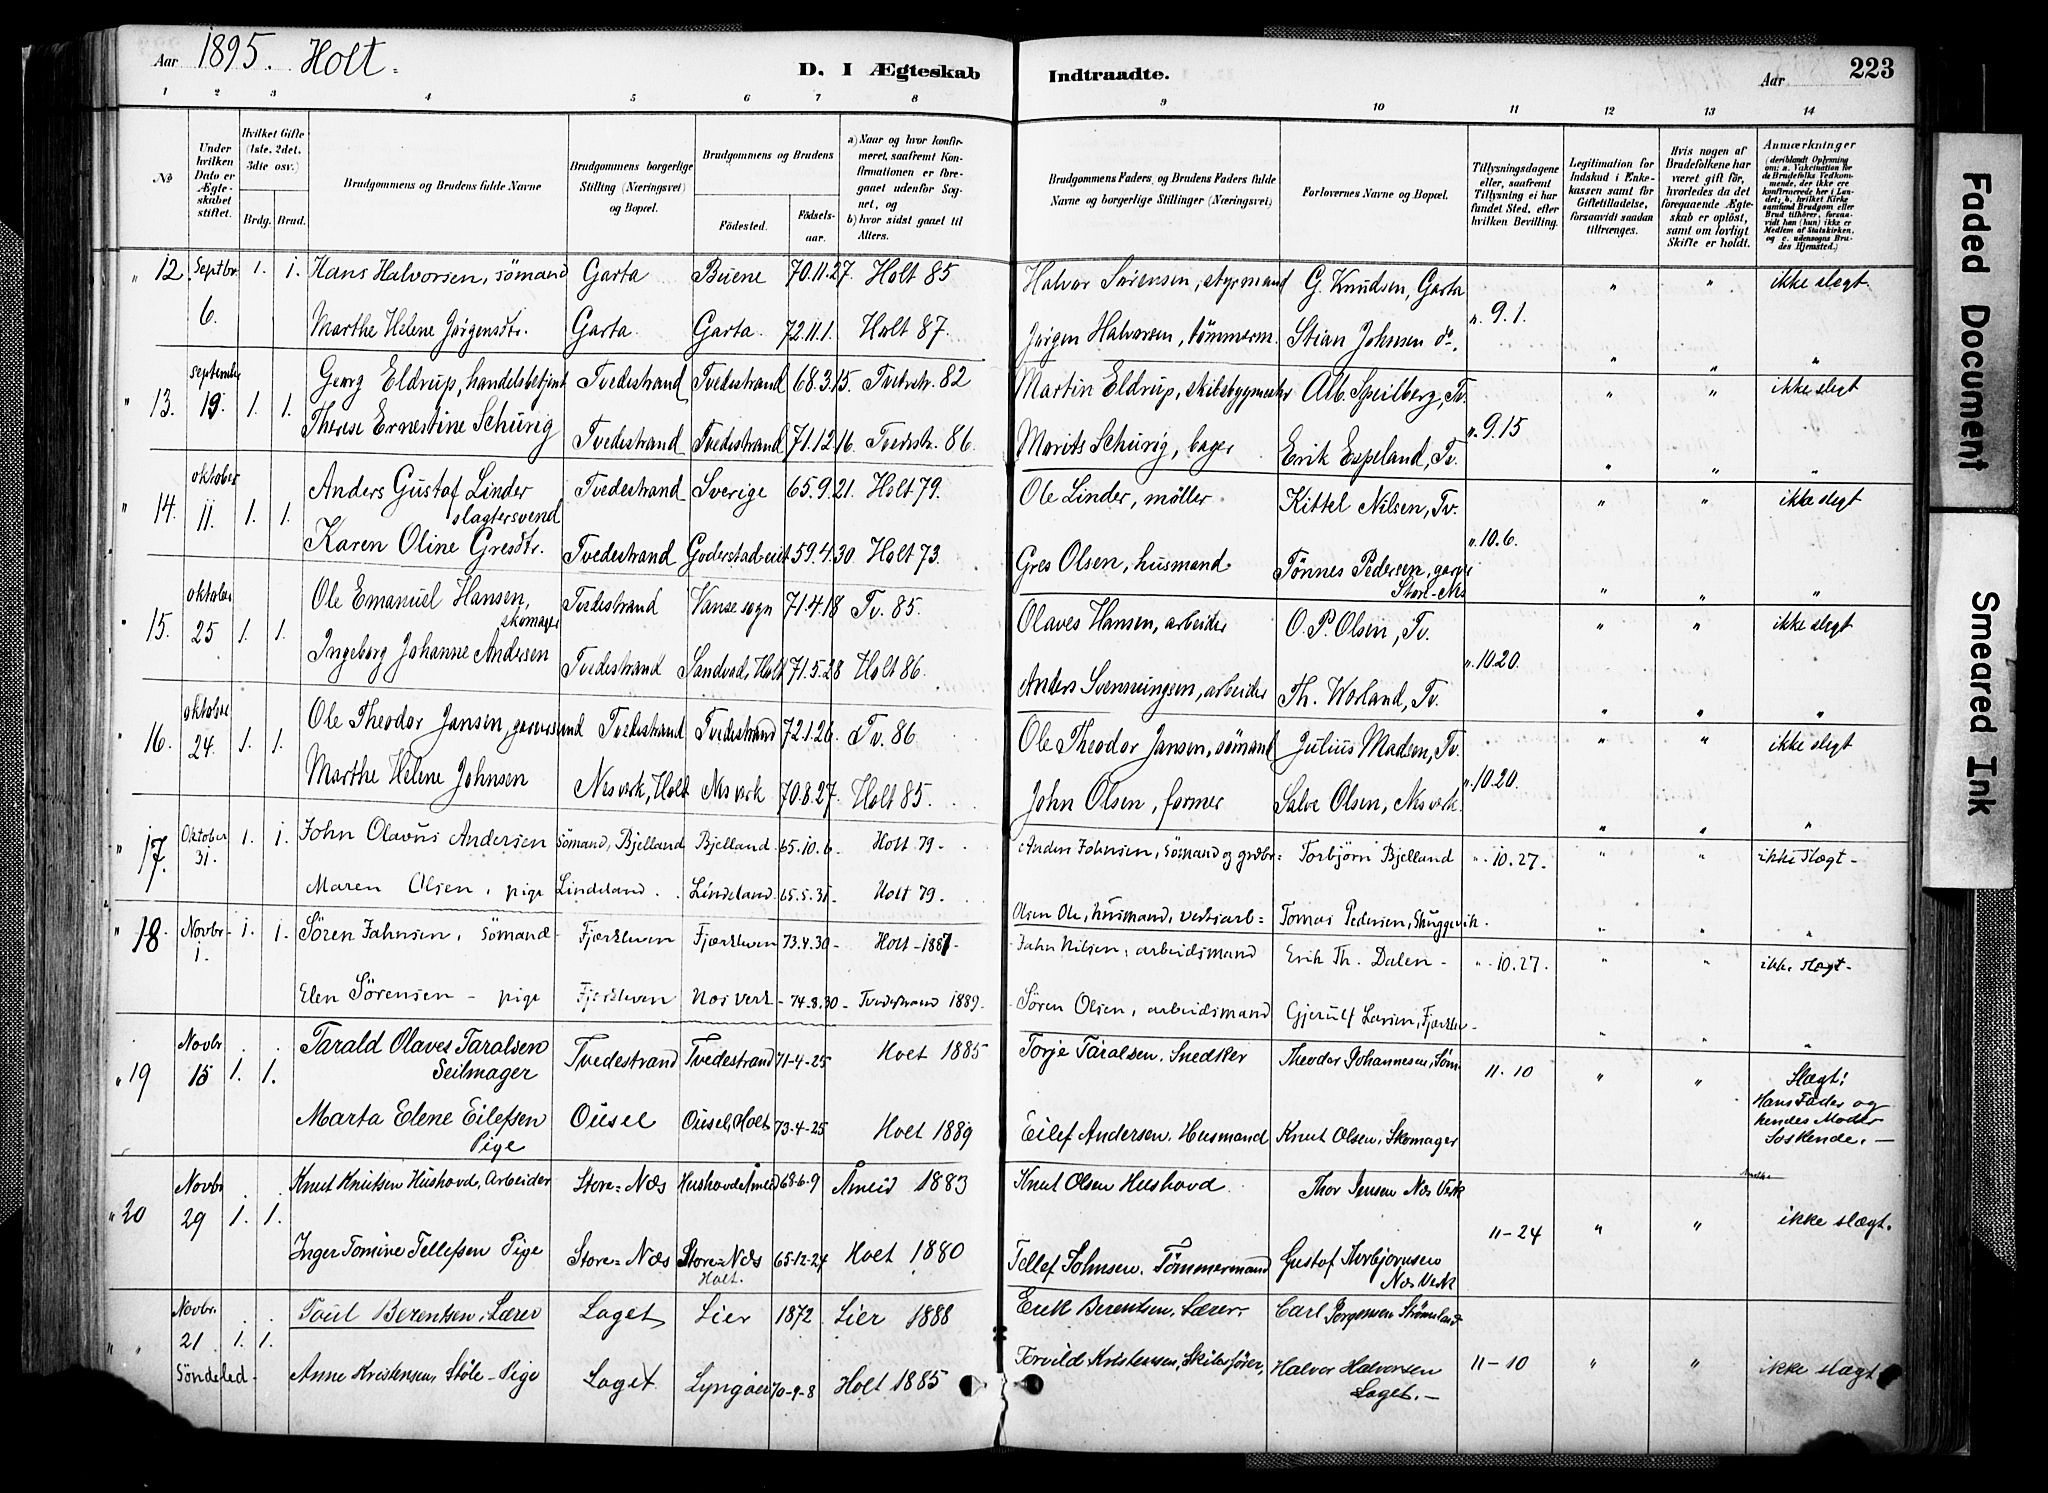 Aar 1895. Holt.
D. I Ægteskab Indtraadte.
Aar 223
1 2 3 4 5 6 7 8 9 10 11 12 13 14
No
Under hvilken Dato er Ægteskabet stiftet.
Hvilket Gifte (1ste, 2det, 3die osv.)
Brdg. Brud.
Brudgommens og Brudens fulde Navne
Brudgommens borgerlige Stilling (Næringsvei) og Bopæl.
Brudgommens og Brudens
Födested. Födselsaar.
a) Naar og hvor konfirmeret, saafremt Konfirmationen er foregaaet udenfor Sognet, og
b) hvor sidst gaaet til Alters.
Brudgommens Faders og Brudens Faders fulde Navne og borgerlige Stillinger (Næringsvei)
Forlovernes Navne og Bopæl.
Tillysningsdagene eller, saafremt Tillysning ei har fundet Sted, efter hvilken Bevilling.
Legitimation for Indskud i Enkekassen samt for Giftetilladelse, forsaavidt saadan tiltrænges.
Hvis nogen af Brudefolkene har været gift før, hvorledes da det foregaaende Ægteskab er oplöst, samt om lovligt Skifte er holdt.
Anmærkninger (deriblandt Oplysning om: a. Vakcination for de Brudefolks Vedkommende, der ikke ere konfirmerede her i Landet; b. hvilket Kirkesamfund Brudgom eller Brud tilhörer, forsaavidt han (hun) ikke er Medlem af Statskirken, og c. udensogns Brudes Hjemsted.)
" 12. Septbr. 6. 1. 1. Hans Halvorsen, sömand Garta Buene 70.11.27. Holt 85 Halvor Sørensen, styrmand G. Knudsen, Garta ". 9.1. " " ikke slegt
Marthe Helene Jørgensdtr. Garta. Garta. 72.11.1. Holt 87. Jørgen Halvorsen, tömmerm. Stian Johnsen do. " " "
" 13. september 19. 1. 1. Georg Eldrup, handelsbetjent Tvedestrand Tvedestrand 68.3.15. Tvedestr. 82 Martin Eldrup, skibsbygmester Alb. Speilberg, Tv. ". 9.15 " " ikke slegt
Therese Ernestine Schurig Tvedestrand Tvedestrand 71.12.16. Tvedstr. 86. Morits Schurig, bager Erik Espeland, Tv. " " "
" 14. oktober 11. 1. 1. Anders Gustaf Linder slagtersvend Tvedestrand Sverige 65.9.21. Holt 79. Ole Linder, möller Kittel Nilsen, Tv. ". 10.6. " " ikke slegt
Karen Oline Gresdtr. Tvedestrand Goderstad-eiet 59.4.30 Holt 73. Gres Olsen, husmand. Tönnes Pedersen, Store-Næs " " "
" 15. oktober 25 1. 1. Ole Emanuel Hansen, skomager Tvedestrand Vanse sogn 71.4.18 Tv. 85. Olaves Hansen, arbeider O. P. Olsen, Tv. ". 10.20. " " ikke slegt
Ingeborg Johanne Andersen Tvedestrand Sandvad, Holt 71.5.28 Holt 86. Anders Svenningsen, arbeider Th. Worland, Tv. " " "
" 16. oktober 24. 1. 1. Ole Theodor Jansen, garversvend Tvedestrand Tvedestrand 72.1.26. Tv. 86 Ole Theodor Jansen, sömand Julius Madsen, Tv. ". 10.20. " " ikke slegt
Marthe Helene Johnsen Nesverk, Holt Nesverk 70.8.27. Holt 85. John Olsen, former Salve Olsen, Nesverk. " " "
" 17. Oktober 31. 1. 1. John Olavus Andersen Sömand, Bjelland Bjelland. 65.10.6. Holt 79. Anders Johnsen, Sömand og grdbr= Torbjörn Bjelland ". 10.27. " " ikke Slegt-
Maren Olsen, pige Lindeland. Lindeland. 65.5.31. Holt 79. Olsen Ole, husmand, verksarb= Tomas Pedersen, Skuggevik. " " "
" 18. Novbr. 1. 1. 1. Sören Jahnsen, Sömand- Fjærkleven Fjærkleven 73.4.30 Holt 1887- Jahn Nilsen, arbeidsmand Erik Th. Dalen- ". 10.27. " " ikke Slægt-
Elen Sörensen - pige Fjærkleven Næsverk - 74.8.30 - Tvedestrand 1889. Sören Olsen, arbeidsmand Gjerulf Larsen, Fjærklev- " "
" 19 Novbr 15 1. 1. Tarald Olaves Taralsen Seilmager Tvedestrand Tvedestrand 71-4-25 Holt 1885 Torje Taralsen. Snedker Theodor Johannesen, Söm. 11-10 " " Slægt! Hans Fader og hendes Moder Søskende. -
Marta Elene Eilefsen Pige Ousel Ousel, Holt 73-4-25 Holt 1889 Eilef Andersen. Husmand Knut Olsen. Skomager
" 20 Novbr 29 1. 1. Knut Knutsen Hushovd, Arbeider Store=Næs Hushovd Åmeid 68-6-9 Åmeid 1883 Knut Olsen Hushovd. Thor Jensen Næs Verk 11-24 " " ikke slægt.
Inger Tomine Tellefsen Pige Store=Næs Store=Næs Holt. 65-12-24 Holt 1880 Tellef Johnsen. Tömmermand Gustaf Thorbjornsen Næs Verk
" " Novbr. 21 1. 1. Poul Berentsen, Lærer Laget Lier 1872 Lier 1888 Erik Berentsen, Lærer. Carl Jorgensen 11-10 " " ikke slægt
Søndeled- Anne Kristensen Støle - Pige Laget Lyngöer 70-9-8 Holt 1885 Torvild Kristensen, Skibsfører, Halvor Halvorsen Laget.-
Faded Document
Smeared Ink